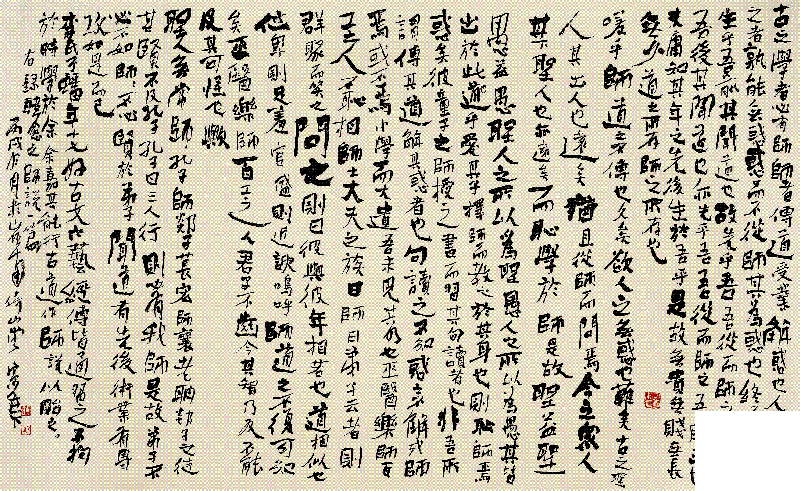 古之學者必有師師者傳道受業解惑也人
之者孰能無惑惑而不從師其為惑也終
生乎吾前其聞道也故先乎吾吾從而師之
吾後其聞道也亦先乎吾吾從而師之吾
夫庸知其年之先後生於吾乎是故無貴無賤無長
無少道之所存師之所存也
嗟乎師道之不傳也久矣欲人之無惑也難矣古之聖
人其出人也遠矣猶且從師而問焉今之眾人
其聖人也亦遠矣而恥學於師是故聖益聖
愚益愚聖人之所以為聖愚人之所以為愚其皆
出於此乎愛其子擇師而教之於其身也則恥師焉
惑矣彼童子之師授之書而習其句讀者也非吾所
謂傳其道解其惑者也句讀之不知惑之不解或師
焉或不焉小學而大遺吾未見其明也巫醫樂師百
工之人不恥相師士大夫之族曰師曰弟子云者則
群聚而笑之問之則曰彼與彼年相若也道相似也
位卑則足羞官盛則近諛嗚呼師道之不復可知
矣巫醫樂師百工之人君子不齒今其智乃反不能
及其可怪也歟
聖人無常師孔子師郯子萇弘師襄老聃郯子之徒
其賢不及孔子孔子曰三人行則必有我師是故弟子不
必不如師師不必賢於弟子聞道有先後術業有專
攻如是而已
李氏子蟠年十七好古文六藝經傳皆通習之不拘
於時學於余余嘉其能行古道作師說以貽之
右錄韓愈之師說一篇